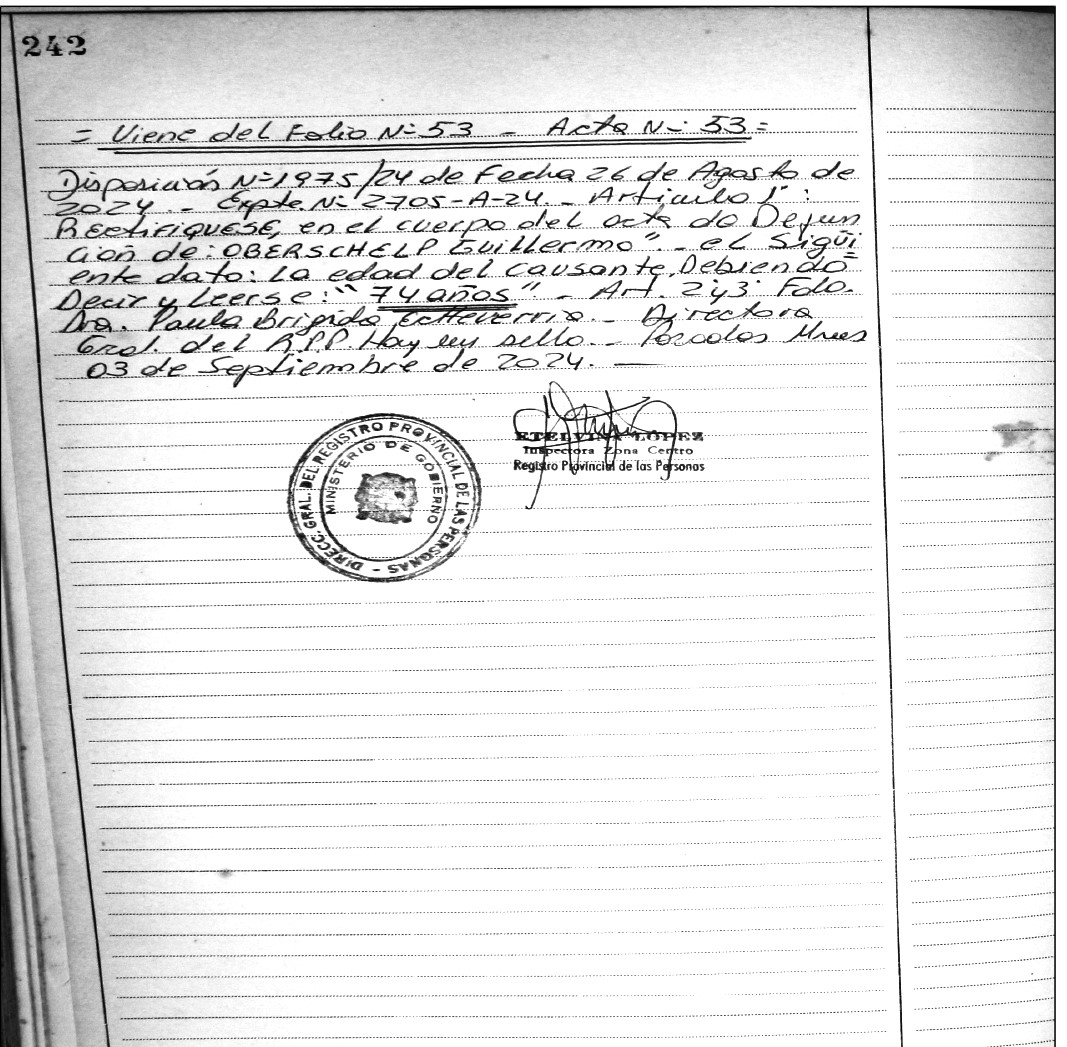 242
= Viene del Folio N: 53 - Acta N: 53 =
Disposición N: 1975/24 de Fecha 26 de Agosto de
2024. - Expte. N: 2705-A-24. - Articulo 1º:
RECtiFIQUESE, en el cuerpo del acta de Defun
ción de: OBERSCHELP Guillermo". - el Sigüi
ente dato: La edad del causante, Debiendo
Decir y Leerse: "74 años". - Art. 2y3: Fdo.
Dra. Paula Brigida Echeverria. - Directora
Gral. del R.P.P Hay un sello. -
03 de Septiembre de 2024. -
ETELVINA LOPEZ
Inspectora Zona Centro
Registro Provincial de las Personas
DIRECC. GRAL. DEL REGISTRO PROVINCIAL DE LAS PERSONAS -
MINISTERIO DE GOBIERNO